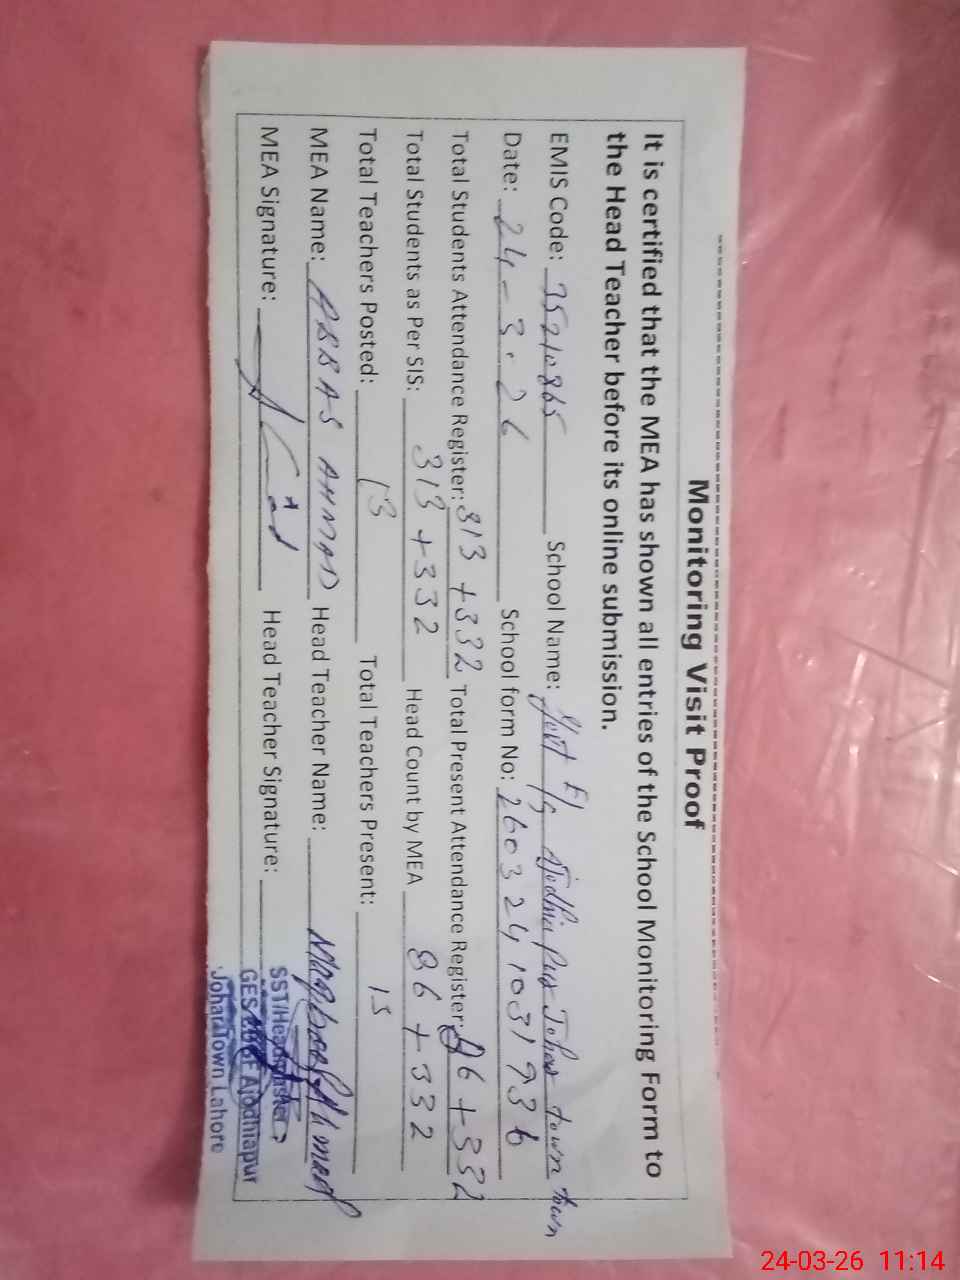 Monitoring Visit Proof
It is certified that the MEA has shown all entries of the School Monitoring Form to
the Head Teacher before its online submission.
EMIS Code: 35210865 School Name: Govt E/S Ajodhia Pur Johar town
town
Date: 24-3-26 School form No: 2603241031936
Total Students Attendance Register: 313 +332 Total Present Attendance Register: 86 +332
Total Students as Per SIS: 313 +332 Head Count by MEA 86 +332
Total Teachers Posted: 13 Total Teachers Present: 13
MEA Name: ABBAS AHMAD Head Teacher Name: Maqbool Ahmad
MEA Signature: Head Teacher Signature:
SST/Headmaster
GES Ajodhiapur
Johar Town Lahore
24-03-26 11:14